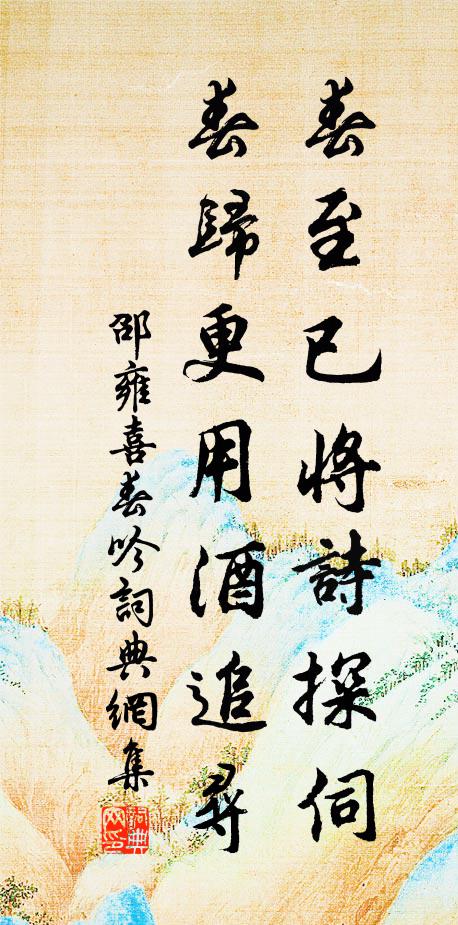 春至已將詩探伺
春歸更用酒追尋
邵雍喜春吟詞典網集
詞典網印